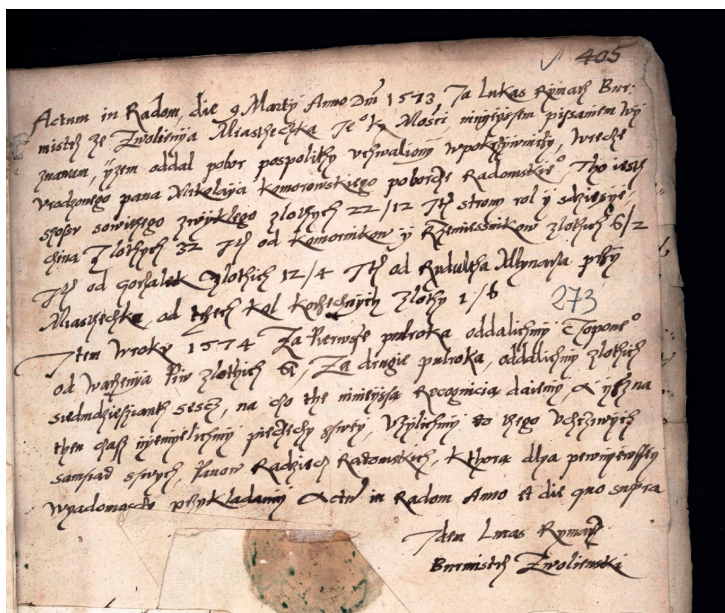 405
Actum in Radom die 9 Marty Anno Dm 1573 Ja Lukas Rymarz Bur:
mistrz ze Zwolienija Miastheczka Je° Kr Mosci ninyeyssem pissaniem wy
znavam, yzem oddal pobor pospolithy vchwaliony wpokrzywniczy, wrecze
vrodzonego pana Mikolaya Komorowskiego poborcze Radomskie°, Tho iesth
szossu sowithego zwyklego zlothych 22/12 Jtem strony rol y sdziesye
china zlothych 32 Jtem od Komornikow y Rzemiessnikow zlothich 6/2
Jtem od gorzalek zlothich 12/4 Jtem od Rudolpha Mlynarza przy
Miastheczku od thrzech kol korzecznych zlothy 1/6
273
Item wroku 1574 Za Pierwsse pulroka oddalichmy Czopone°
od warzenya Piw zlothich 61, Za drugie pulroka, oddalichmy zlothich
siedmdziesianth sescz, na cho the ninieyssa Recognicia daiemy & ysz na
then czass nyemyelichmy pieczechy sswey, Vzylichmy do thego Vchzciwych
samsiad sswych, Panow Radziech Radomskich, Kthora dlya pewnyeyssey
wyadomosczy przykladamy Actum in Radom Anno et die quo supra
Idem Lucas Rymarz
Burmistrz Zwolienski